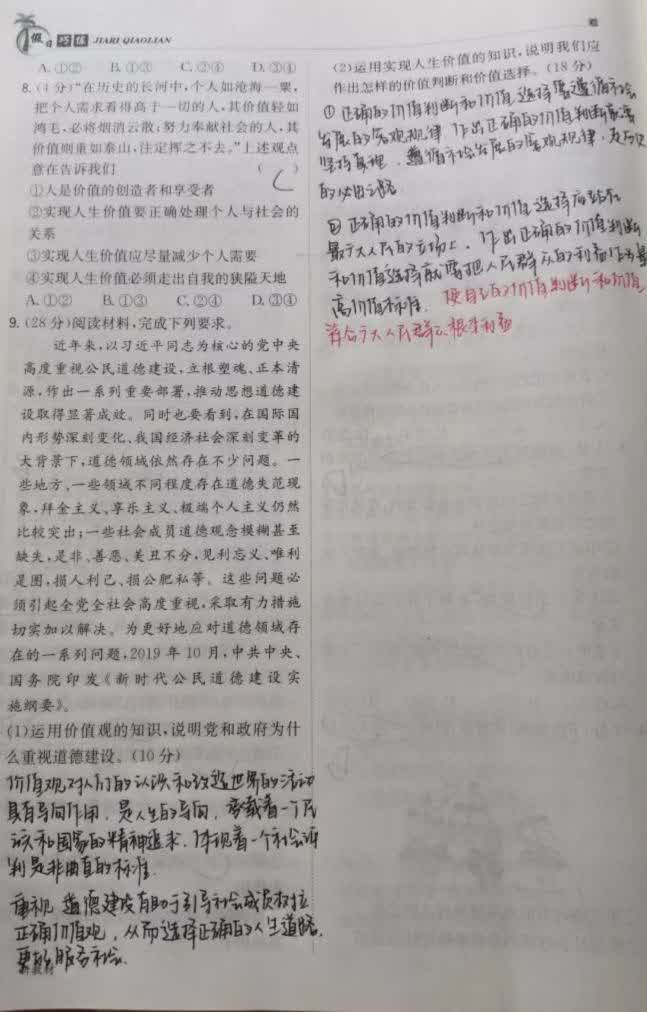 假日巧练 JIARI QIAOLIAN
A. ①② B. ①③ C. ②④ D. ③④
8. (4 分)“在历史的长河中,个人如沧海一粟,
把个人需求看得高于一切的人,其价值轻如
鸿毛,必将烟消云散;努力奉献社会的人,其
价值则重如泰山,注定挥之不去。”上述观点
意在告诉我们 ( C )
①人是价值的创造者和享受者
②实现人生价值要正确处理个人与社会的
关系
③实现人生价值应尽量减少个人需要
④实现人生价值必须走出自我的狭隘天地
A. ①② B. ①③ C. ②④ D. ③④
9. (28 分)阅读材料,完成下列要求。
近年来,以习近平同志为核心的党中央
高度重视公民道德建设,立根塑魂、正本清
源,作出一系列重要部署,推动思想道德建
设取得显著成效。同时也要看到,在国际国
内形势深刻变化、我国经济社会深刻变革的
大背景下,道德领域依然存在不少问题。一
些地方、一些领域不同程度存在道德失范现
象,拜金主义、享乐主义、极端个人主义仍然
比较突出;一些社会成员道德观念模糊甚至
缺失,是非、善恶、美丑不分,见利忘义、唯利
是图,损人利己、损公肥私等。这些问题必
须引起全党全社会高度重视,采取有力措施
切实加以解决。为更好地应对道德领域存
在的一系列问题,2019 年 10 月,中共中央、
国务院印发《新时代公民道德建设实
施纲要》。
(1)运用价值观的知识,说明党和政府为什
么重视道德建设。(10 分)
价值观对人们的认识和改造世界的活动
具有导向作用,是人生的导向,承载着一个民
族和国家的精神追求,体现着一个社会评
判是非曲直的标准.
重视道德建设有助于引导社会成员树立
正确价值观,从而选择正确的人生道路,
更好服务社会.
新教材
(2)运用实现人生价值的知识,说明我们应
作出怎样的价值判断和价值选择。(18 分)
①正确的价值判断和价值选择需遵循社会
发展的客观规律,作出正确的价值判断
坚持真理,遵循社会发展的客观规律,
的必由之路
②正确的价值判断和价值选择应站在
最广大人民的立场上,作出正确的价值判断
和价值选择就需把人民群众的利益作为最
高价值标准. 使自己的价值判断和价值
符合广大人民群众根本利益